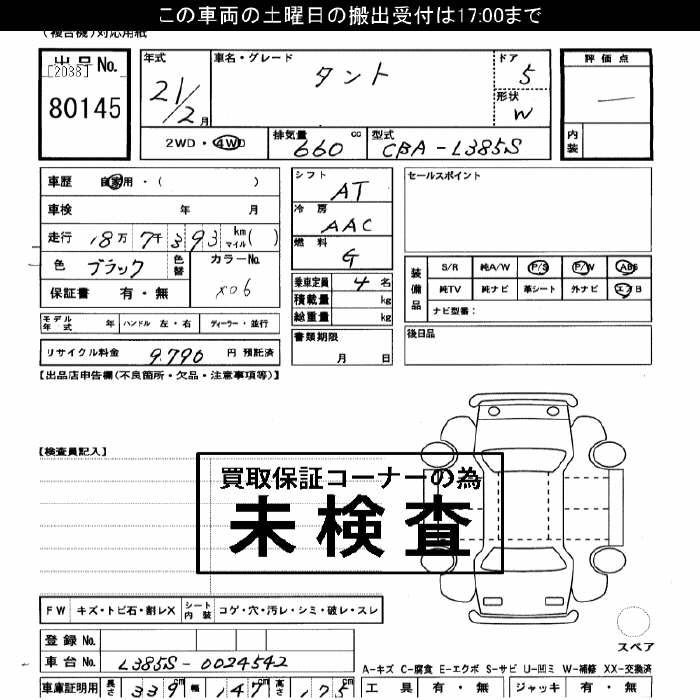 この車両の土曜日の搬出受付は17:00まで
(複合機)対応用紙
出品No.
[2038]
80145
年式 車名・グレード ドア 評価点
21/2月 タント 5 —
形状 W
2WD・4WD 排気量 660 cc 型式 CBA-L385S 内装
車歴 自家用・( )
車検 年 月
走行 18万7千393 km マイル( )
色 ブラック 色替 カラーNo. X06
保証書 有・無
シフト AT
冷房 AAC
燃料 G
乗車定員 4名
積載量 kg
総重量 kg
セールスポイント
装備品 S/R 純A/W P/S P/W ABS
純TV 純ナビ 革シート 外ナビ エアB
ナビ型番:
モデル年式 年 ハンドル 左・右 ディーラー・並行
書類期限 月 日
後日品
リサイクル料金 9,790 円 預託済
【出品店申告欄(不良箇所・欠品・注意事項等)】
【検査員記入】
買取保証コーナーの為
未検査
FW キズ・トビ石・割レX シート内装 コゲ・穴・汚レ・シミ・破レ・スレ
登録No.
車台No. L385S-0024542
スペア
A-キズ C-腐食 E-エクボ S-サビ U-凹ミ W-補修 XX-交換済
車庫証明用 長さ 339cm 幅 147cm 高さ 175cm
工具 有・無 ジャッキ 有・無